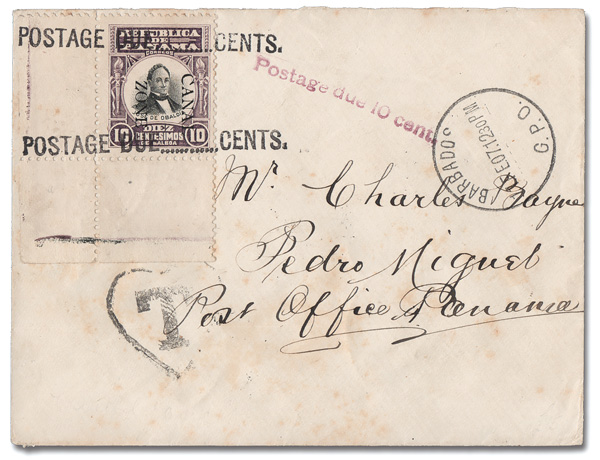 POSTAGE DUE CENTS.
REPUBLICA
DE
PANAMA
CORREOS
CANAL
ZONE
DE OBALDIA
10 DIEZ 10
CENTESIMOS
BALBOA
POSTAGE DUE CENTS.
Postage due 10 cent.
BARBADOS
G.P.O.
Mr. Charles Bayne
Pedro Miguel
Post Office Panama
T